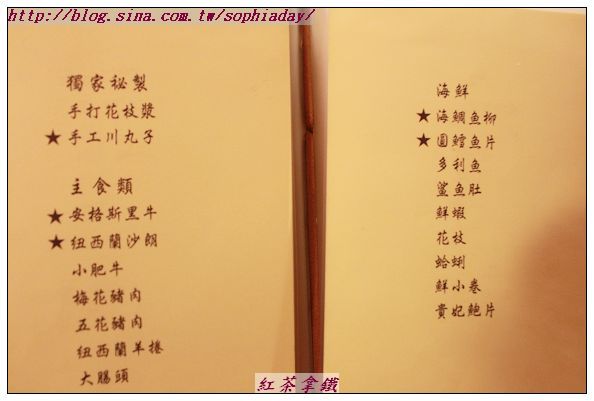 http://blog.sina.com.tw/sophiaday/
獨家祕製
手打花枝漿
★手工川丸子
主食類
★安格斯黑牛
★紐西蘭沙朗
小肥牛
梅花豬肉
五花豬肉
紐西蘭羊捲
大腸頭
海鮮
★海鯛魚柳
★圓鱈魚片
多利魚
鯊魚肚
鮮蝦
花枝
蛤蜊
鮮小卷
貴妃鮑片
紅茶拿鐵